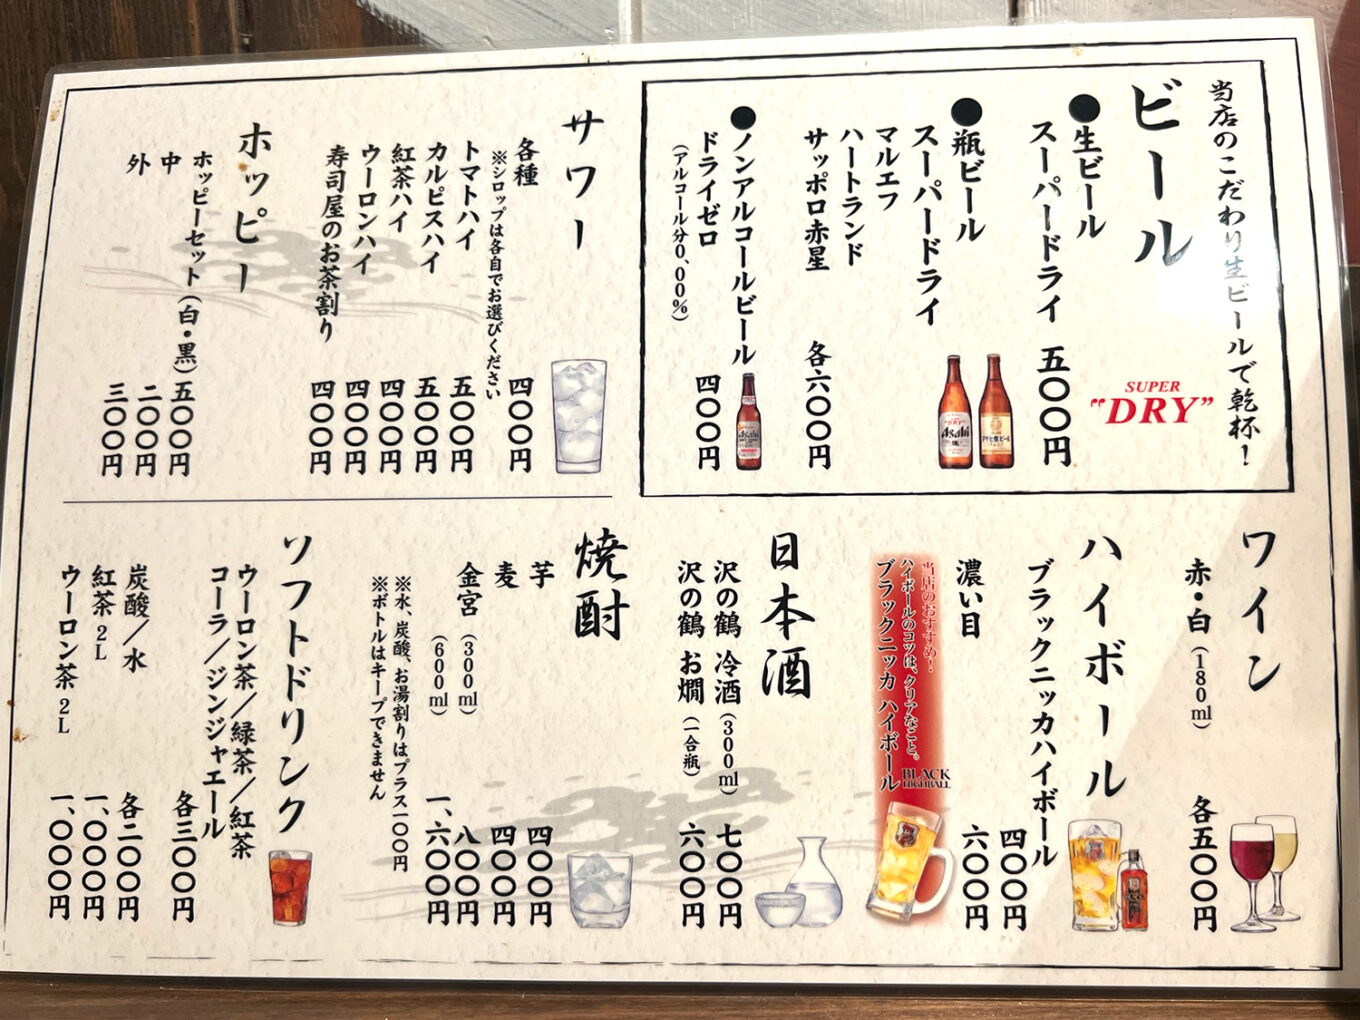 当店のこだわり生ビールで乾杯！
ビール
SUPER
"DRY"
●生ビール
スーパードライ 五〇〇円
●瓶ビール
スーパードライ
マルエフ
ハートランド
サッポロ赤星 各六〇〇円
●ノンアルコールビール
ドライゼロ 四〇〇円
（アルコール分0.00%）
Asahi
サワー
各種 四〇〇円
※シロップは各自でお選びください
トマトハイ 五〇〇円
カルピスハイ 五〇〇円
紅茶ハイ 四〇〇円
ウーロンハイ 四〇〇円
寿司屋のお茶割り 四〇〇円
ホッピー
ホッピーセット（白・黒） 五〇〇円
中 二〇〇円
外 三〇〇円
ワイン
赤・白（180ml） 各五〇〇円
ハイボール
ブラックニッカハイボール 四〇〇円
濃い目 六〇〇円
当店のおすすめ！
ハイボールのコツは、クリアなこと。
ブラックニッカ ハイボール
BLACK
HIGHBALL
日本酒
沢の鶴 冷酒（300ml） 七〇〇円
沢の鶴 お燗（一合瓶） 六〇〇円
焼酎
芋 四〇〇円
麦 四〇〇円
金宮（300ml） 八〇〇円
（600ml） 一、六〇〇円
※水、炭酸、お湯割りはプラス一〇〇円
※ボトルはキープできません
ソフトドリンク
ウーロン茶／緑茶／紅茶
コーラ／ジンジャエール 各三〇〇円
炭酸／水 各二〇〇円
紅茶2L 一、〇〇〇円
ウーロン茶2L 一、〇〇〇円